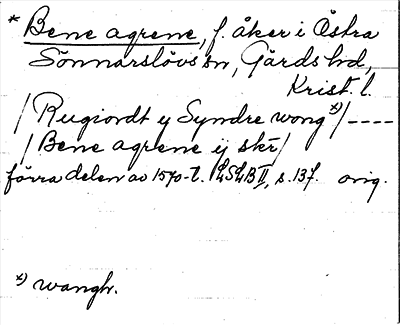 * Bene agrene, f. åker i Östra
Sönnarslövs sn, Gärds hd,
Krist. l.
/ Rugiordt y Syndre wong x) / ----
/ Bene agrene ij skr /
förra delen av 1570-t. LSLB II, s. 137. orig.
x) wangh.